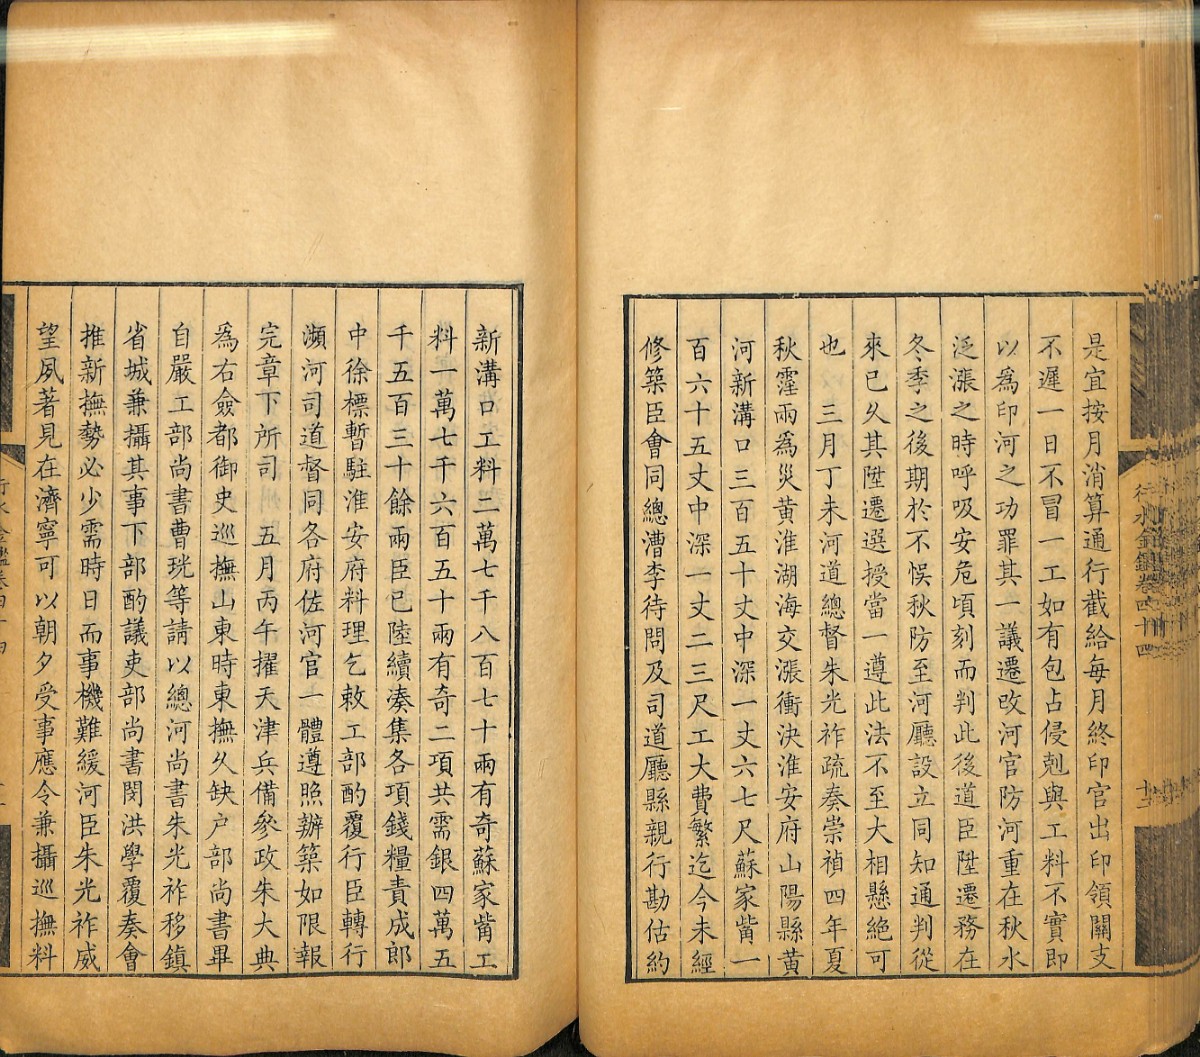 行水金鑑卷四十四
十二
是宜按月消算通行截給每月終印官出印領關支
不遲一日不冒一工如有包占侵剋與工料不實即
以爲印河之功罪其一議遷改河官防河重在秋水
泛漲之時呼吸安危頃刻而判此後道臣陞遷務在
冬季之後期於不悞秋防至河廳設立同知通判從
來已久其陞遷選授當一遵此法不至大相懸絶可
也　三月丁未河道總督朱光祚疏奏崇禎四年夏
秋霪雨爲災黄淮湖海交漲衝決淮安府山陽縣黄
河新溝口三百五十丈中深一丈六七尺蘇家觜一
百六十五丈中深一丈二三尺工大費繁迄今未經
修築臣會同總漕李待問及司道廳縣親行勘估約
新溝口工料二萬七千八百七十兩有奇蘇家觜工
料一萬七千六百五十兩有奇二項共需銀四萬五
千五百三十餘兩臣已陸續湊集各項錢糧責成郎
中徐標暫駐淮安府料理乞敕工部酌覆行臣轉行
瀕河司道督同各府佐河官一體遵照辦築如限報
完章下所司　五月丙午擢天津兵備參政朱大典
爲右僉都御史巡撫山東時東撫久缺户部尚書畢
自嚴工部尚書曹珖等請以總河尚書朱光祚移鎮
省城兼攝其事下部酌議吏部尚書閔洪學覆奏會
推新撫勢必少需時日而事機難緩河臣朱光祚威
望夙著見在濟寧可以朝夕受事應令兼攝巡撫料